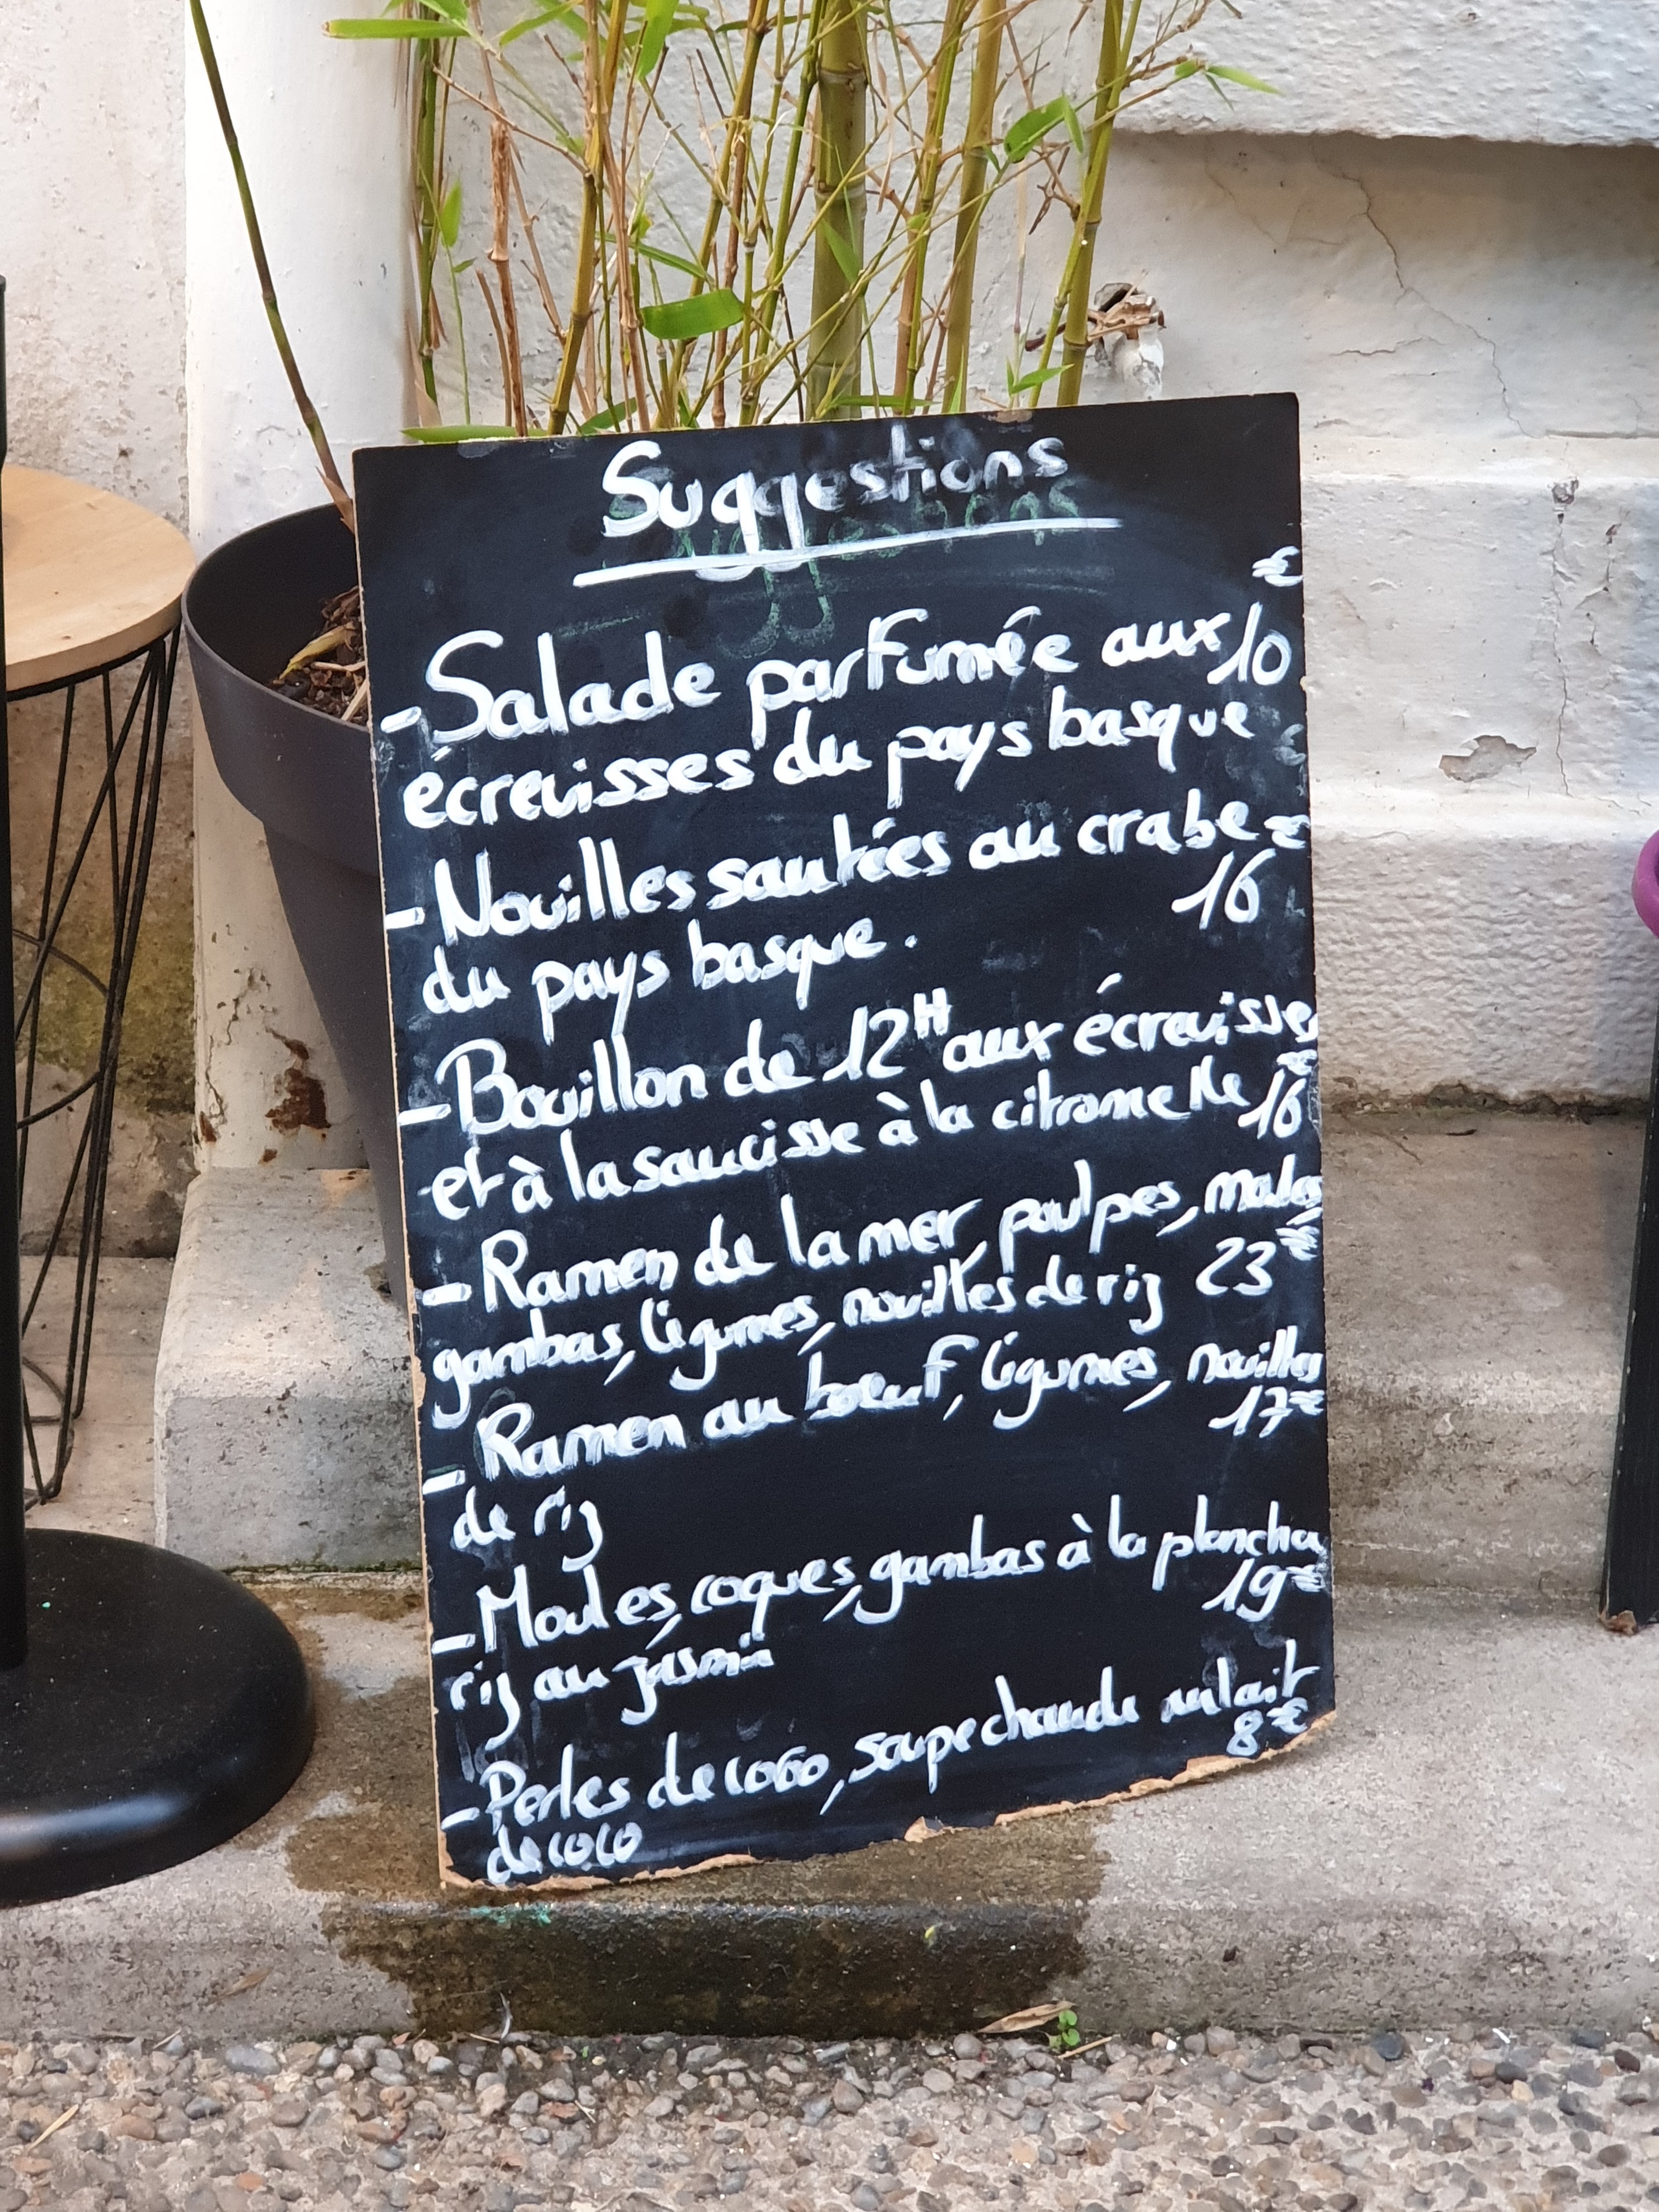 Suggestions
€
- Salade parfumée aux 10
écrevisses du pays basque
- Nouilles sautées au crabe €
16
du pays basque.
- Bouillon de 12H aux écrevisses
€
et à la saucisse à la citronnelle 16
- Ramen de la mer, poulpes, moules
gambas, légumes, nouilles de riz 23€
- Ramen au boeuf, légumes, nouilles
17€
de riz
- Moules, coques, gambas à la plancha
19€
riz au jasmin
- Perles de coco, soupe chaude au lait
8€
de coco